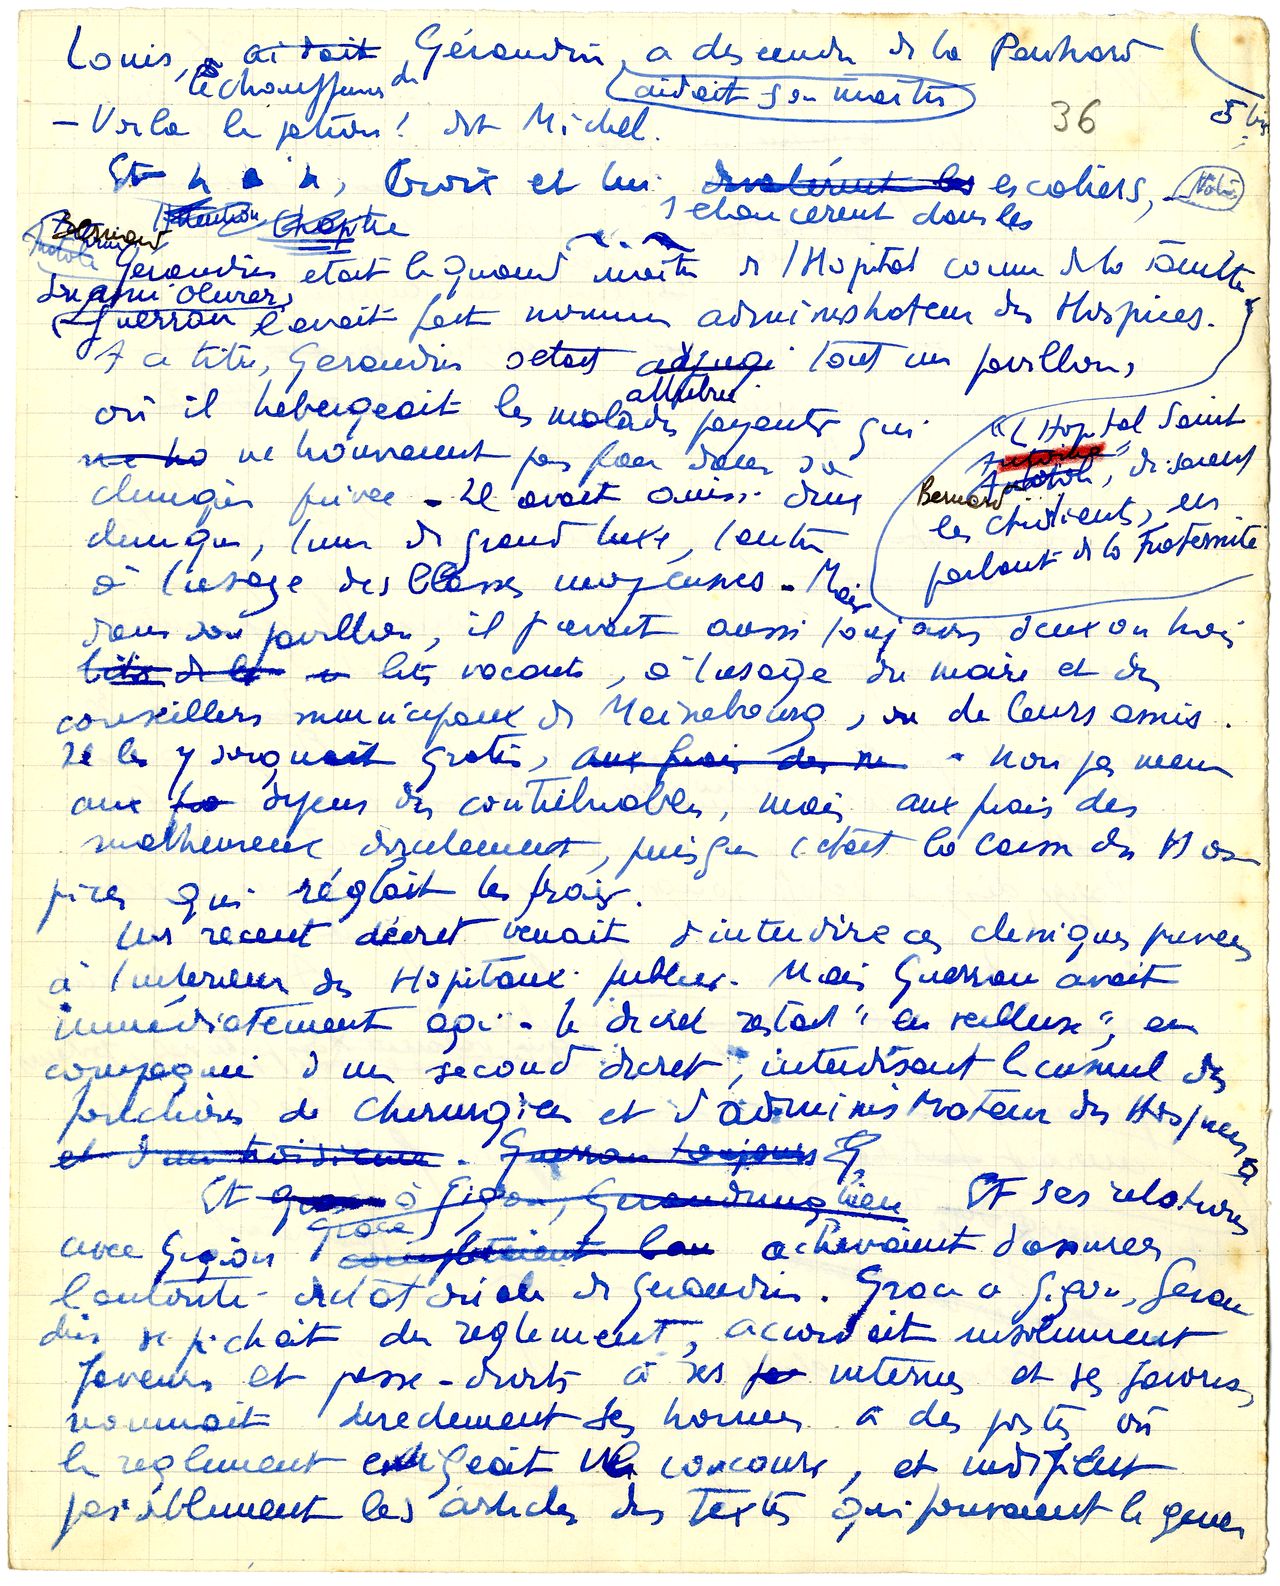 Louis, ai dait Géraudin, a descendre de la Panhard
le chauffeur de
aidait son maître
36
5 bis
— Voilà le patron ! dit Michel.
Et Groix et lui escaliers,
s'élancèrent dans les
Attention
Chapitre
Bernard
Géraudin était le grand maître de l'Hôpital comme de la Faculté.
Son ami Olivier
Guerran l'avait fait nommer administrateur des Hospices.
A ce titre, Géraudin s'était adjugé tout un pavillon,
attribué
où il hébergeait les malades payants qui
ne trouvaient pas place dans sa
clinique privée - Il avait aussi deux
cliniques, l'une de grand luxe, l'autre
à l'usage des classes moyennes - Mais
"L'Hôpital Saint
Bernard", disaient
les étudiants, en
parlant de la Fraternité
dans son pavillon, il y avait aussi toujours deux ou trois
lits vacants, à l'usage du maire et des
conseillers municipaux de Mainebourg, ou de leurs amis.
Il les y soignait gratis, aux frais des - non pas même
aux dépens des contribuables, mais aux frais des
malheureux directement, puisque c'était la caisse des Hos-
pices qui réglait les frais.
Un récent décret venait d'interdire ces cliniques privées
à l'intérieur des Hôpitaux publics. Mais Guerran avait
immédiatement agi - le décret restait "en veilleuse", en
compagnie d'un second décret, interdisant le cumul des
fonctions de chirurgien et d'administrateur des Hospices
et d'un troisième. Guerran toujours
Et à Gigon, Géraudin Et ses relations
grâce
avec Gigon complétaient achevaient d'assurer
l'autorité dictatoriale de Géraudin. Grâce à Gigon, Gérau-
din se fichait du règlement, accordait insolemment
faveurs et passe-droits à ses internes et ses favoris,
nommait directement ses hommes à des postes où
le règlement exigeait le concours, et modifiait
paisiblement les articles des textes qui pouvaient le gêner